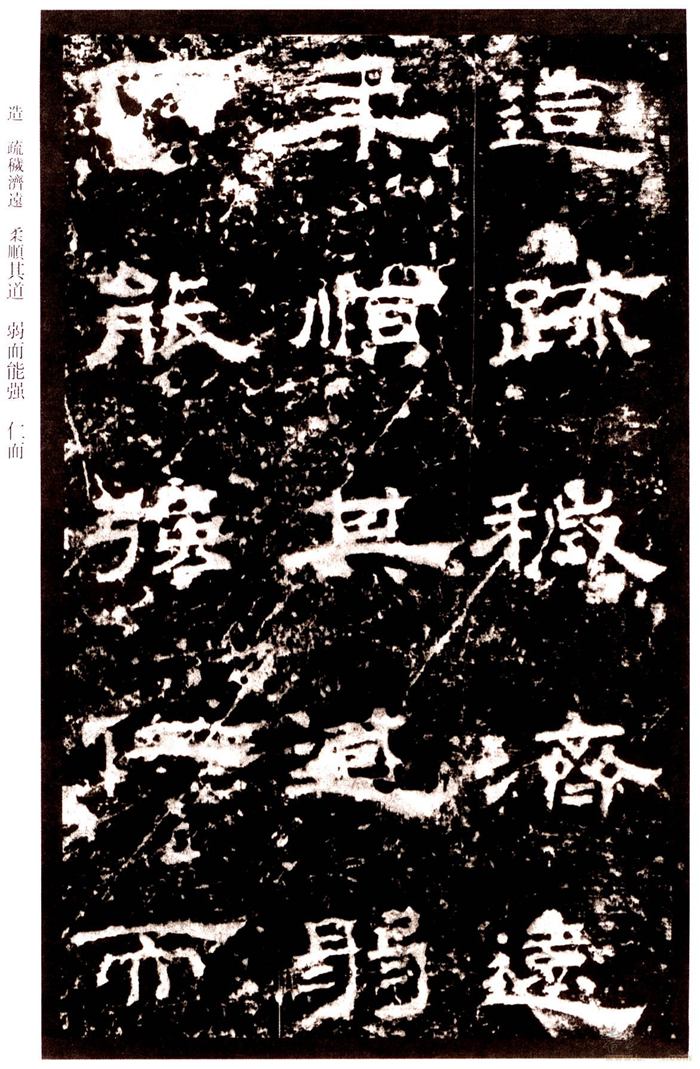 造疏穢濟遠
柔順其道弱
而能强仁而
造 疏穢濟遠 柔順其道 弱而能强 仁而